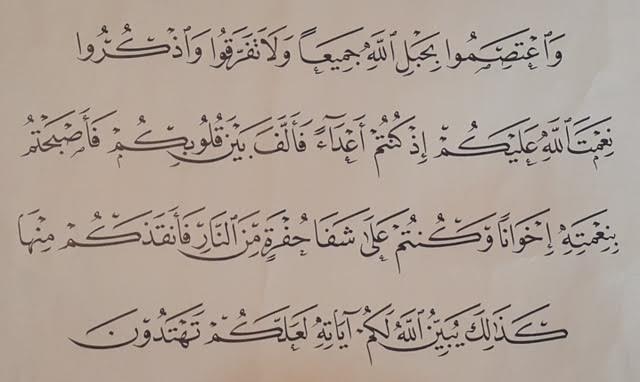 وَاعْتَصِمُوا بِحَبْلِ اللَّهِ جَمِيعاً وَلَا تَفَرَّقُوا وَاذْكُرُوا
نِعْمَتَ اللَّهِ عَلَيْكُمْ إِذْ كُنتُمْ أَعْدَاءً فَأَلَّفَ بَيْنَ قُلُوبِكُمْ فَأَصْبَحْتُمْ
بِنِعْمَتِهِ إِخْوَاناً وَكُنتُمْ عَلَى شَفَا حُفْرَةٍ مِّنَ النَّارِ فَأَنقَذَكُمْ مِنْهَا
كَذَٰلِكَ يُبَيِّنُ اللَّهُ لَكُمْ آيَاتِهِ لَعَلَّكُمْ تَهْتَدُونَ